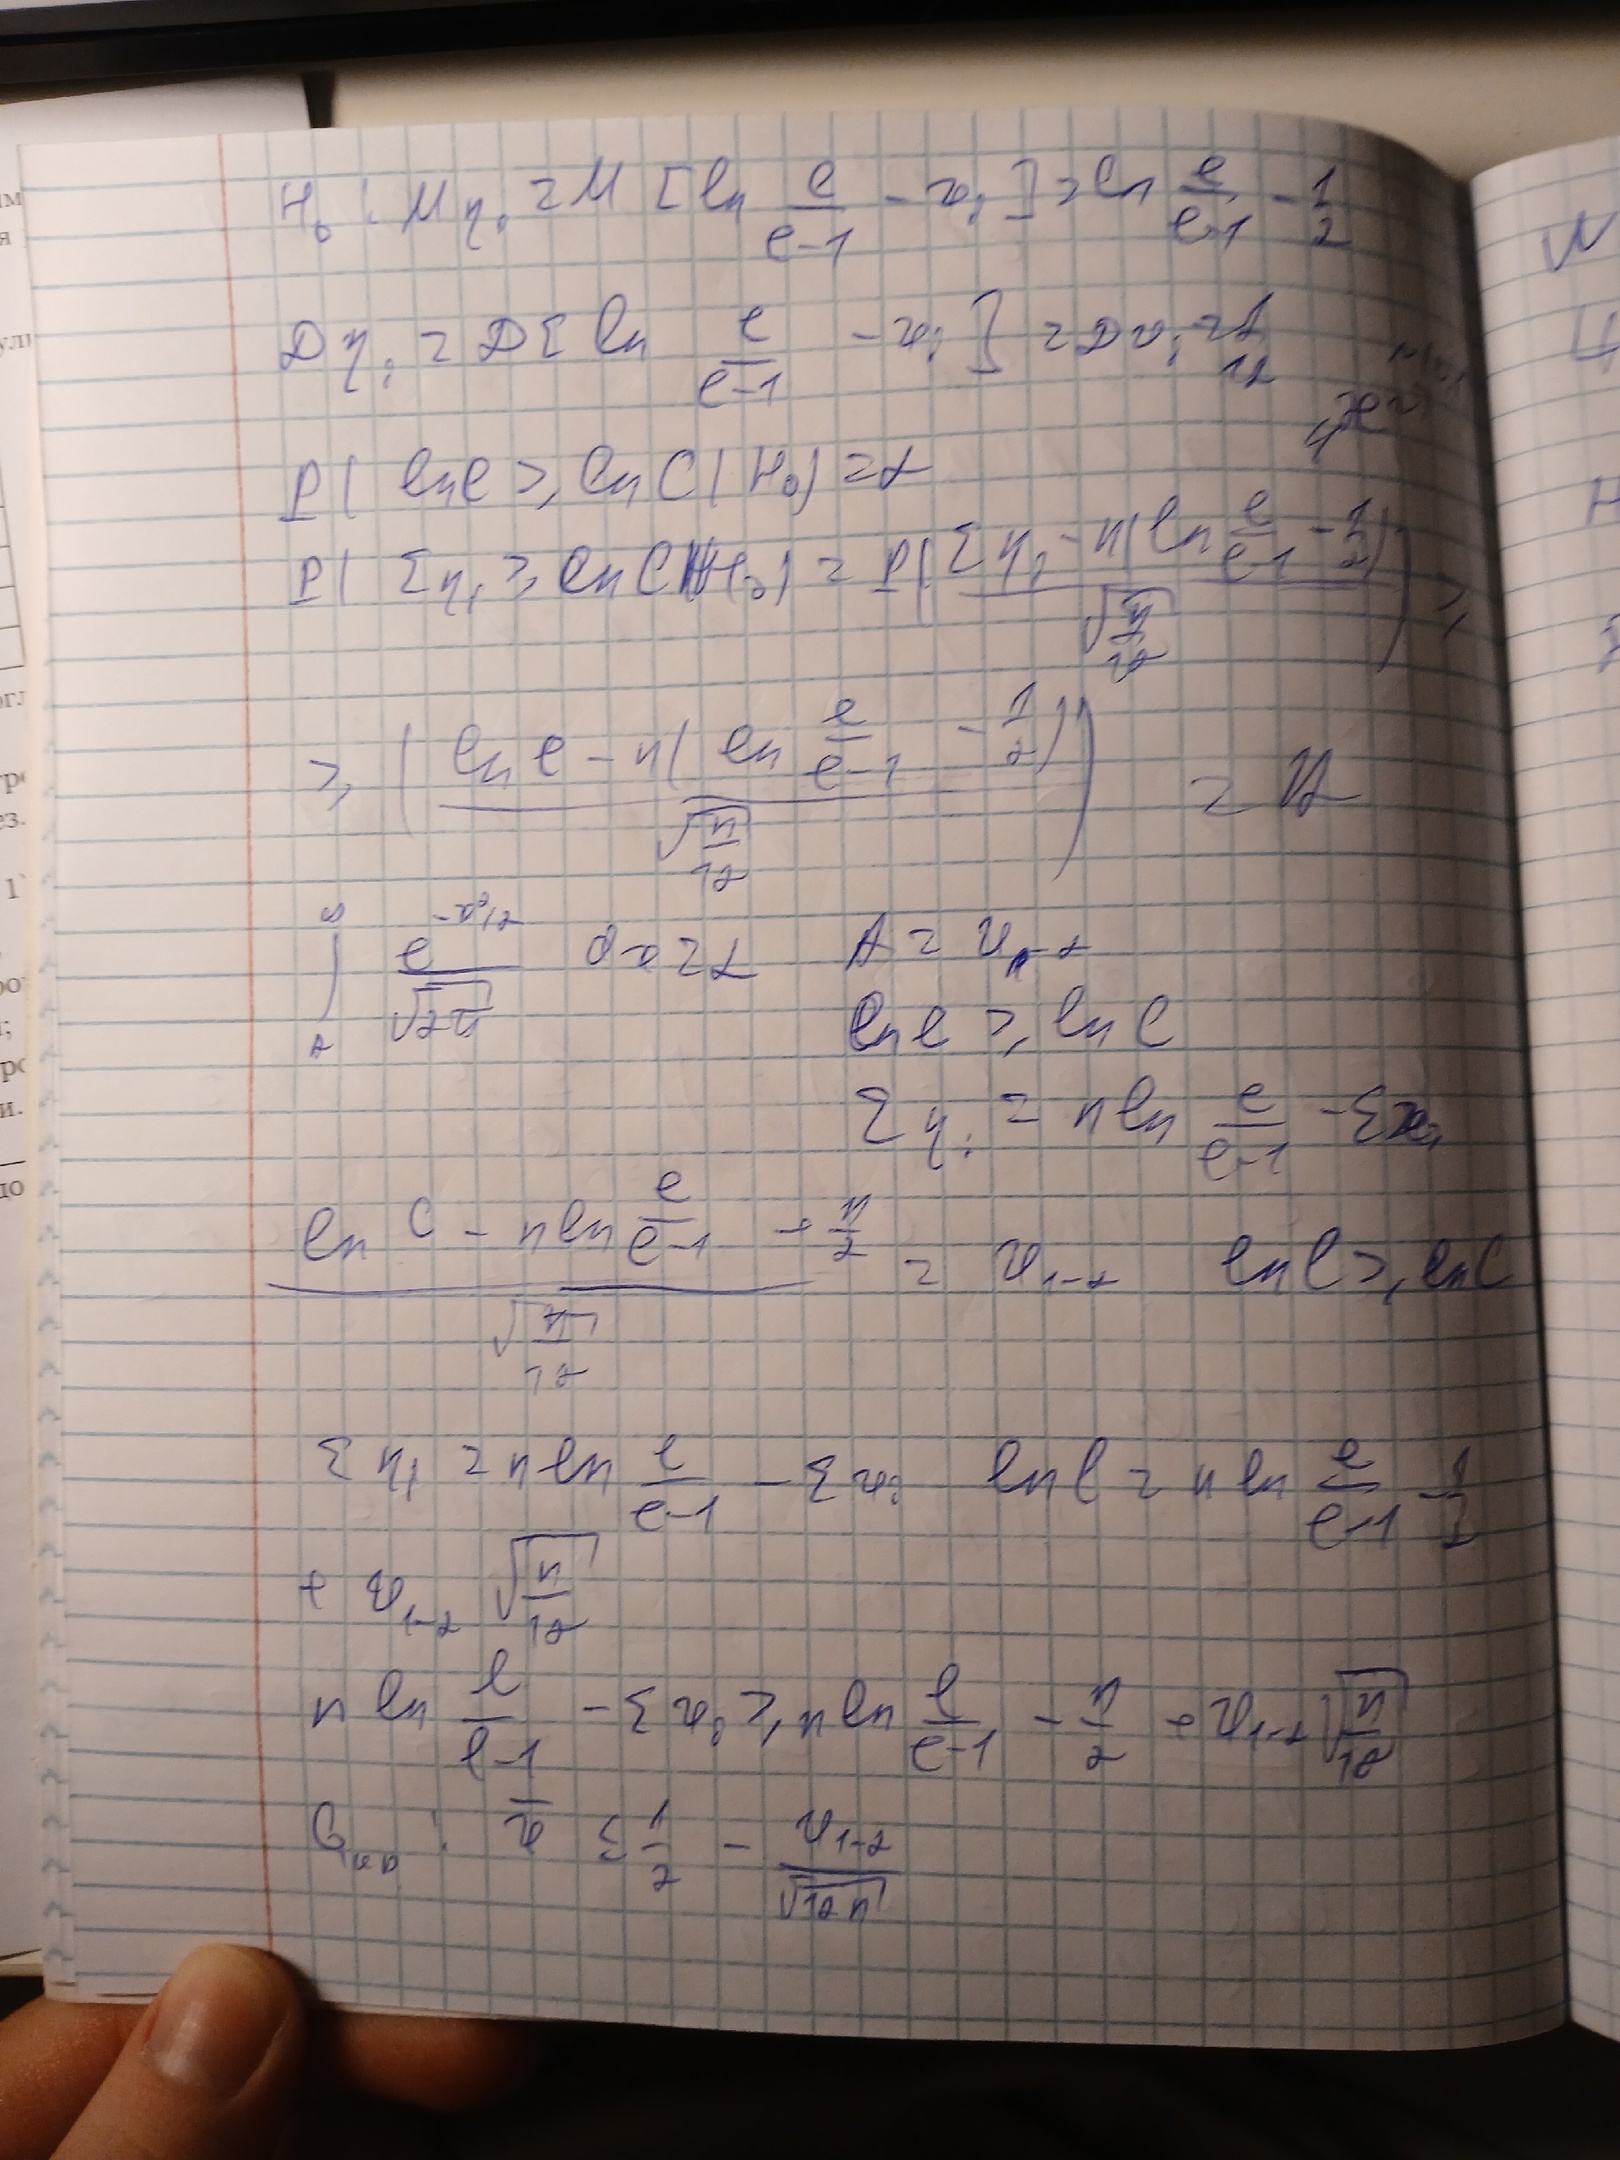 H₀: Mηᵢ = M [ln e/(e-1) - xᵢ] = ln e/(e-1) - 1/2
Dηᵢ = D[ln e/(e-1) - xᵢ] = Dxᵢ = 1/12
P( ln l ≥ ln C | H₀) = α
P( Σηᵢ ≥ ln C | H₀) = P( (Σηᵢ - n(ln e/(e-1) - 1/2)) / √(n/12) ≥
≥ (ln C - n(ln e/(e-1) - 1/2)) / √(n/12) ) = α
∫_A^∞ e^(-x²/2)/√(2π) dx = α A = u₁₋α
ln l ≥ ln C
Σηᵢ = n ln e/(e-1) - Σxᵢ
(ln C - n ln e/(e-1) + n/2) / √(n/12) = u₁₋α ln l ≥ ln C
Σηᵢ = n ln e/(e-1) - Σxᵢ ln C = n ln e/(e-1) - 1/2
+ u₁₋α √(n/12)
n ln e/(e-1) - Σxᵢ ≥ n ln e/(e-1) - n/2 + u₁₋α √(n/12)
G кр : x̄ ≤ 1/2 - u₁₋α/√(12n)